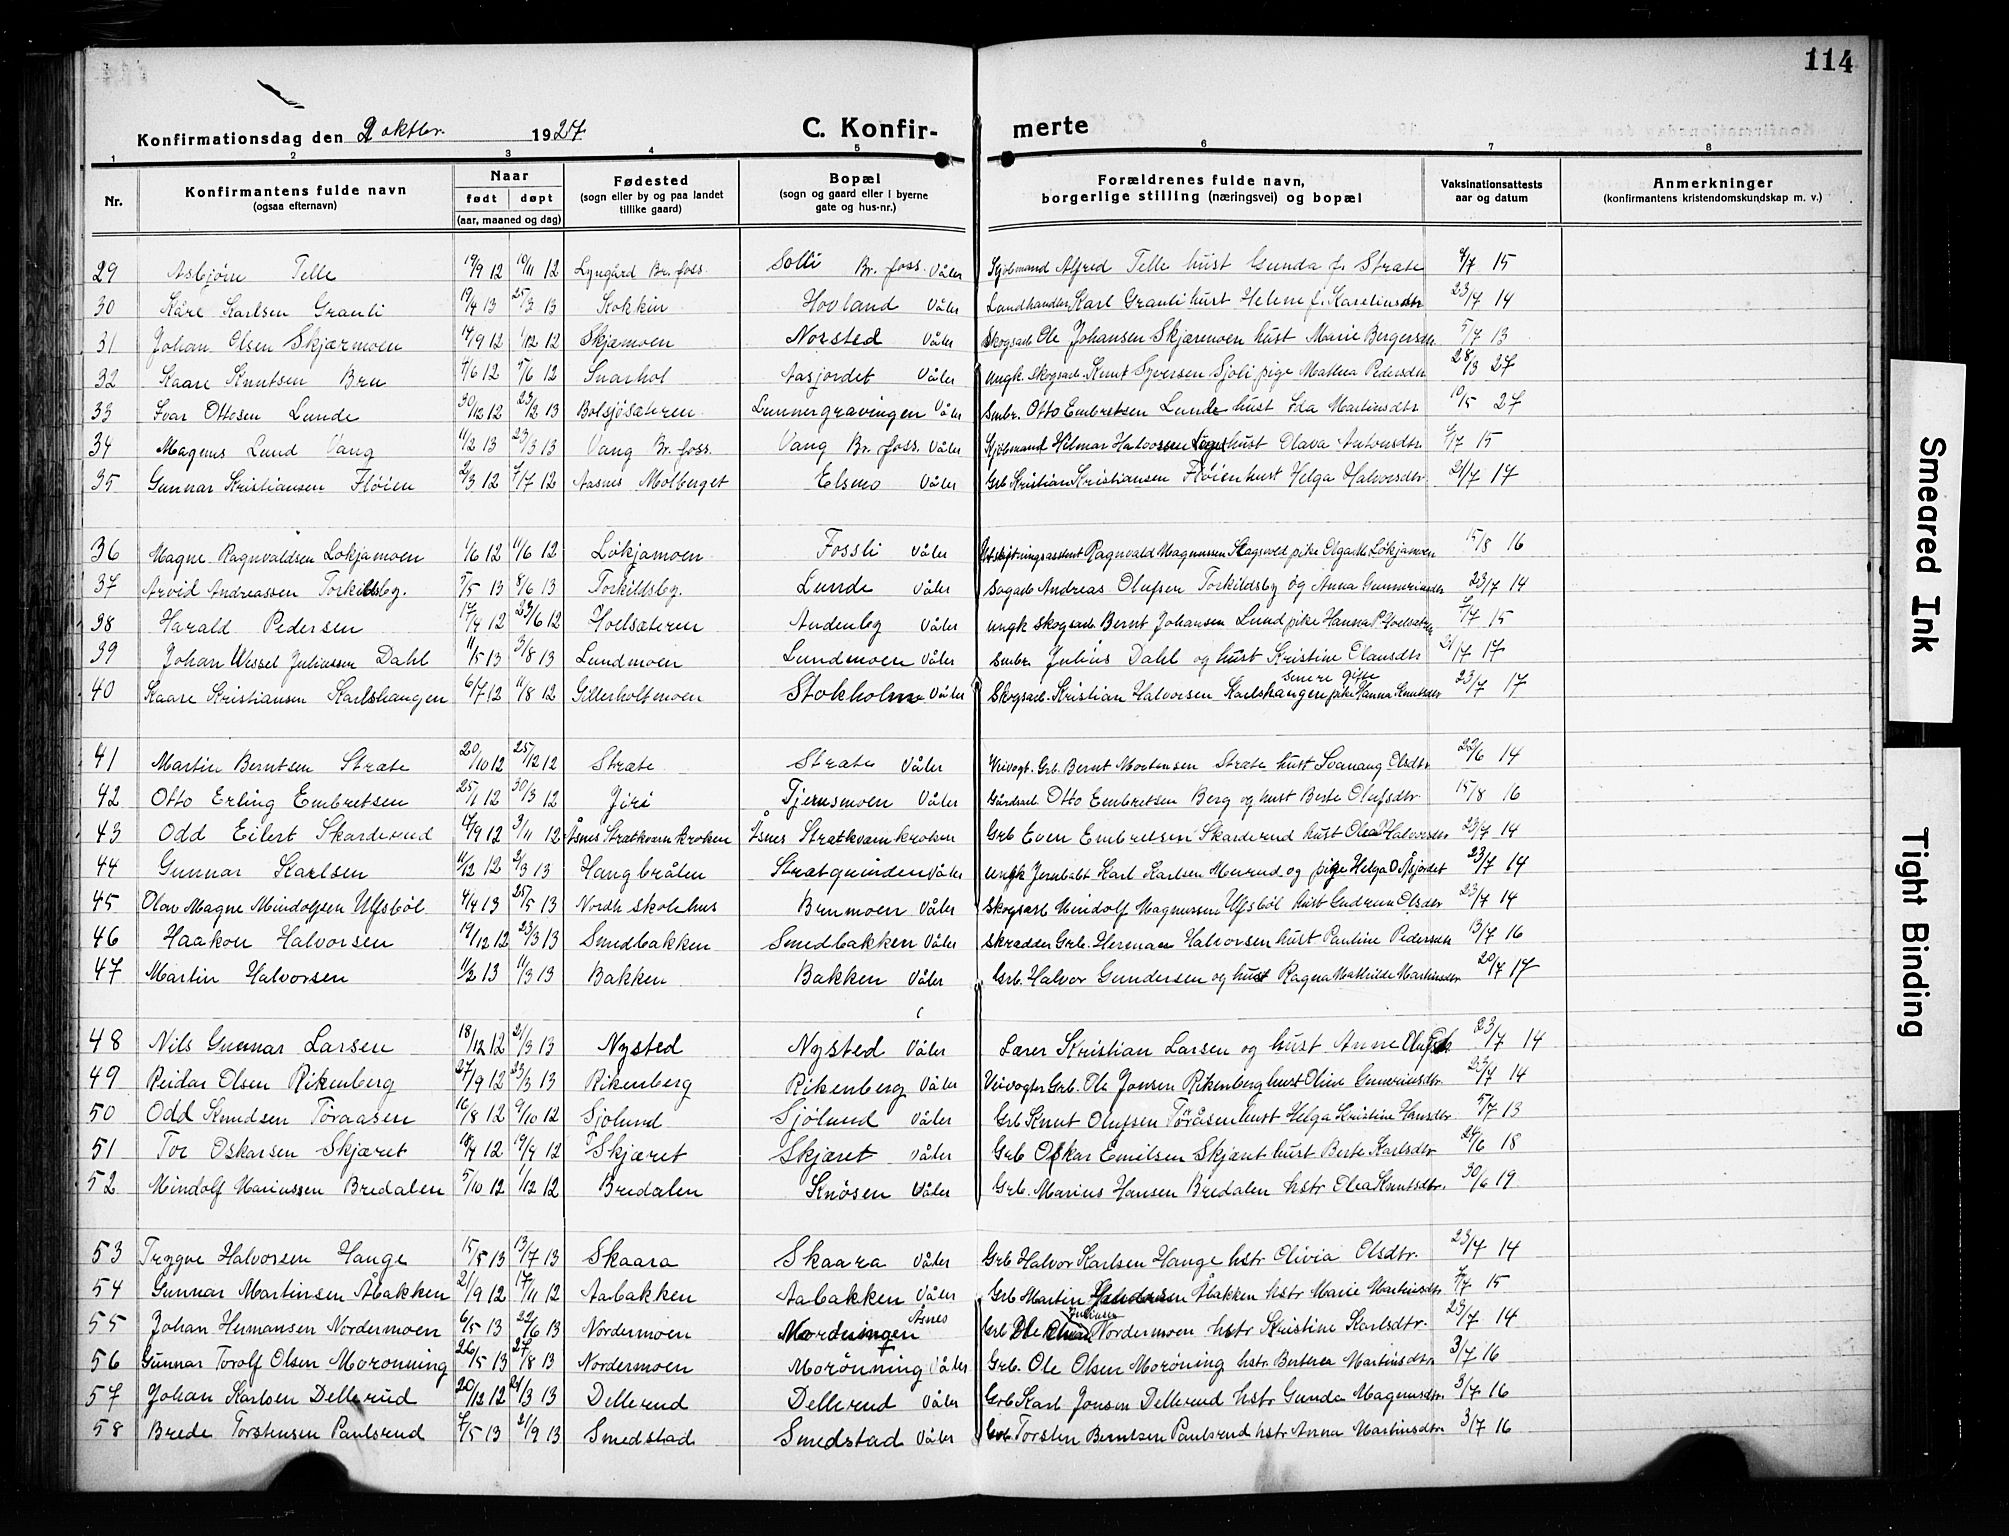 114
Konfirmationsdag den 2 oktbr. 1927 C. Konfir- merte
1 2 3 4 5 6 7 8
Nr. Konfirmantens fulde navn (ogsaa efternavn) Naar født døpt (aar, maaned og dag) Fødested (sogn eller by og paa landet tillike gaard) Bopæl (sogn og gaard eller i byerne gate og hus-nr.) Forældrenes fulde navn, borgerlige stilling (næringsvei) og bopæl Vaksinationsattests aar og datum Anmerkninger (konfirmantens kristendomskundskap m. v.)
29 Asbjörn Telle 19/9 12 10/11 12 Lyngård Br. foss. Solli Br. foss. Våler Alfred Telle hust Gunda f. Strate 15
30 Kåre Karlsen Granli 19/4 13 25/3 13 Kokkin Hovland Våler Landhandler Karl Granli hust Helene f. Karelinusdtr 23/7 14
31 Johan Olsen Skjærmoen 14/9 12 1/12 12 Skjæmoen Norsted Våler Skogsarb Ole Johansen Skjæremoen hust Marie Bergersdtr 5/7 13
32 Kaare Knutsen Bru 4/6 12 5/6 12 Snarhol Aasjordet Våler ungk. Skogsarb. Knut Syversen Sjoli pige Mathea Pedersdtr 28/3 27
33 Ivar Ottesen Lunde 30/12 12 23/2 13 Bolsjösæteren Lunnergravingen Våler Smbr. Otto Embretsen Lunde hust Ida Martinsdtr 10/5 27
34 Magnus Lund Vang 11/2 13 23/3 13 Vang Br. foss. Vang Br. foss. Våler Hilmar Halvorsen hust Olava Antonsdtr 15
35 Gunnar Kristiansen Flöien 2/3 12 7/7 12 Aasnes Molberget Elsmo Våler Grb Kristian Kristiansen Flöien hust Helga Halvorsdtr 21/7 17
36 Magne Ragnvaldsen Lökjamoen 1/6 12 11/6 12 Lökjamoen Fossli Våler Ragnvald Magnussen Skogsved pike Olga M. Lökjamoen 15/8 16
37 Arvid Andreassen Torkildsby. 5/5 13 8/6 13 Torkildsby. Lunde Våler Sagarb Andreas Olufsen Torkildsby og Anna Gunneriusdtr 23/7 14
38 Harald Pedersen 17/4 12 23/6 12 Hoelsæteren Andenby Våler ungk Skogsarb Bernt Johansen Lund pike Hanna P. Hoelsætren 7/7 15
39 Johan Wessel Juliussen Dahl 11/5 13 3/8 13 Lundmoen Lundmoen Våler Smbr. Julius Dahl og hust Kristine Olausdtr 21/7 17
40 Kaare Kristiansen Karlshaugen 6/7 12 11/8 12 Gillerholtmoen Stokholm Våler Skogsarb. Kristian Halvorsen Karlshaugen pike Hanna Knutsdtr senere gifte 23/7 17
41 Martin Berntsen Strate 20/10 12 25/12 12 Strate Strate Våler Veivogt. Grb. Bernt Mortensen Strate hust Svanaug Olsdtr 22/6 14
42 Otto Erling Embretsen 25/1 12 30/3 12 Jiri Tjernsmoen Våler Gårdsarb Otto Embretsen Berg og hust Berte Olufsdtr 15/8 16
43 Odd Eilert Skarderud 17/9 12 3/11 12 Åsnes Stratkvarn kroken Åsnes Stratkvarn kroken Grb Even Embretsen Skarderud hust Olea Halvorsdtr 23/7 14
44 Gunnar Karlsen 11/12 12 2/3 13 Haugbråten Stratgrinden Våler ungk Jernbalt Karl Karlsen Morud og pige Helga O Åsjordet 23/7 14
45 Olav Magne Mindolfsen Ulfsböl 4/4 13 25/5 13 Nordh. skolehus Brumoen Våler Skogsarb Mindolf Magnussen Ulfsböl hust Gudrun Olsdtr 23/7 14
46 Haakon Halvorsen 19/12 12 23/3 13 Smedbakken Smedbakken Våler Skrædder Grb. Herman Halvorsen hust Pauline Pedersdtr 13/7 16
47 Martin Halvorsen 11/2 13 11/3 13 Bakken Bakken Våler Grb. Halvor Gundersen og hust Ragna Mathilde Martinsdtr 20/7 17
48 Nils Gunnar Larsen 18/12 12 21/3 13 Nysted Nysted Våler Lærer Kristian Larsen og hust Anne Olufsdtr 23/7 14
49 Reidar Olsen Rikenberg 27/9 12 23/3 13 Rikenberg Rikenberg Våler Veivogter Grb. Ole Jonsen Rikenberg hust Oline Gunneriusdtr. 23/7 14
50 Odd Knudsen Töraasen 16/8 12 9/10 12 Sjölund Sjölund Våler Grb Knut Olufsen Töråsen hust Helga Kristine Hansdtr 5/7 13
51 Tor Oskarsen Skjæret 18/7 12 19/9 12 Skjæret Skjæret Våler Grb Oskar Emilsen Skjæret hust Berte Karlsdtr 24/6 18
52 Mindolf Mariussen Bredalen 5/10 12 1/12 12 Bredalen Knösen Våler Grb. Marius Hansen Bredalen hstr Olea Knutsdtr. 30/6 19
53 Trygve Halvorsen Hauge 15/5 13 13/7 13 Skaara Skaara Våler Grb Halvor Karlsen Hauge hstr Olivia Olsdtr. 23/7 14
54 Gunnar Martinsen Åbakken 21/9 12 17/11 12 Aabakken Aabakken Våler Grb Martin Åbakken hstr Marie Martinsdtr 7/7 15
55 Johan Hermansen Nordermoen 6/5 13 22/6 13 Nordermoen Åsnes Grb Nordermoen hstr Kristine Karlsdtr. 23/7 14
56 Gunnar Torolf Olsen Moronning 26/5 13 27/8 13 Nordermoen Morönning Våler Grb. Ole Olsen Moröning hstr. Berthea Martinsdtr 3/7 16
57 Johan Karlsen Dellerud 20/12 12 24/3 13 Dellerud Dellerud Våler Grb Karl Jonsen Dellerud hstr Gunda Magnusdtr 3/7 16
58 Brede Torstensen Paulsrud 7/5 13 21/9 13 Smedstad Smedstad Våler Grb Torsten Berntsen Paulsrud hstr Anna Martinsdtr 3/7 16
Smeared Ink
Tight Binding